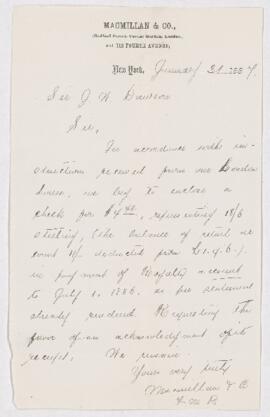 MACMILLAN & CO.,
(Bedford Street, Covent Garden, London,)
and 112 FOURTH AVENUE,
New York, January 31 1887.
Sir J. W. Dawson
Sir,
In accordance with in-
structions received from our London
house, we beg to enclose a
check for $4.
sterling, (the balance of
deducted from £1.4.6.)
in payment of Royalty account
to July 1. 1886. as per statement
already rendered. Requesting the
favor of an acknowledgment of its
receipt, We remain
Yours very truly
Macmillan & Co